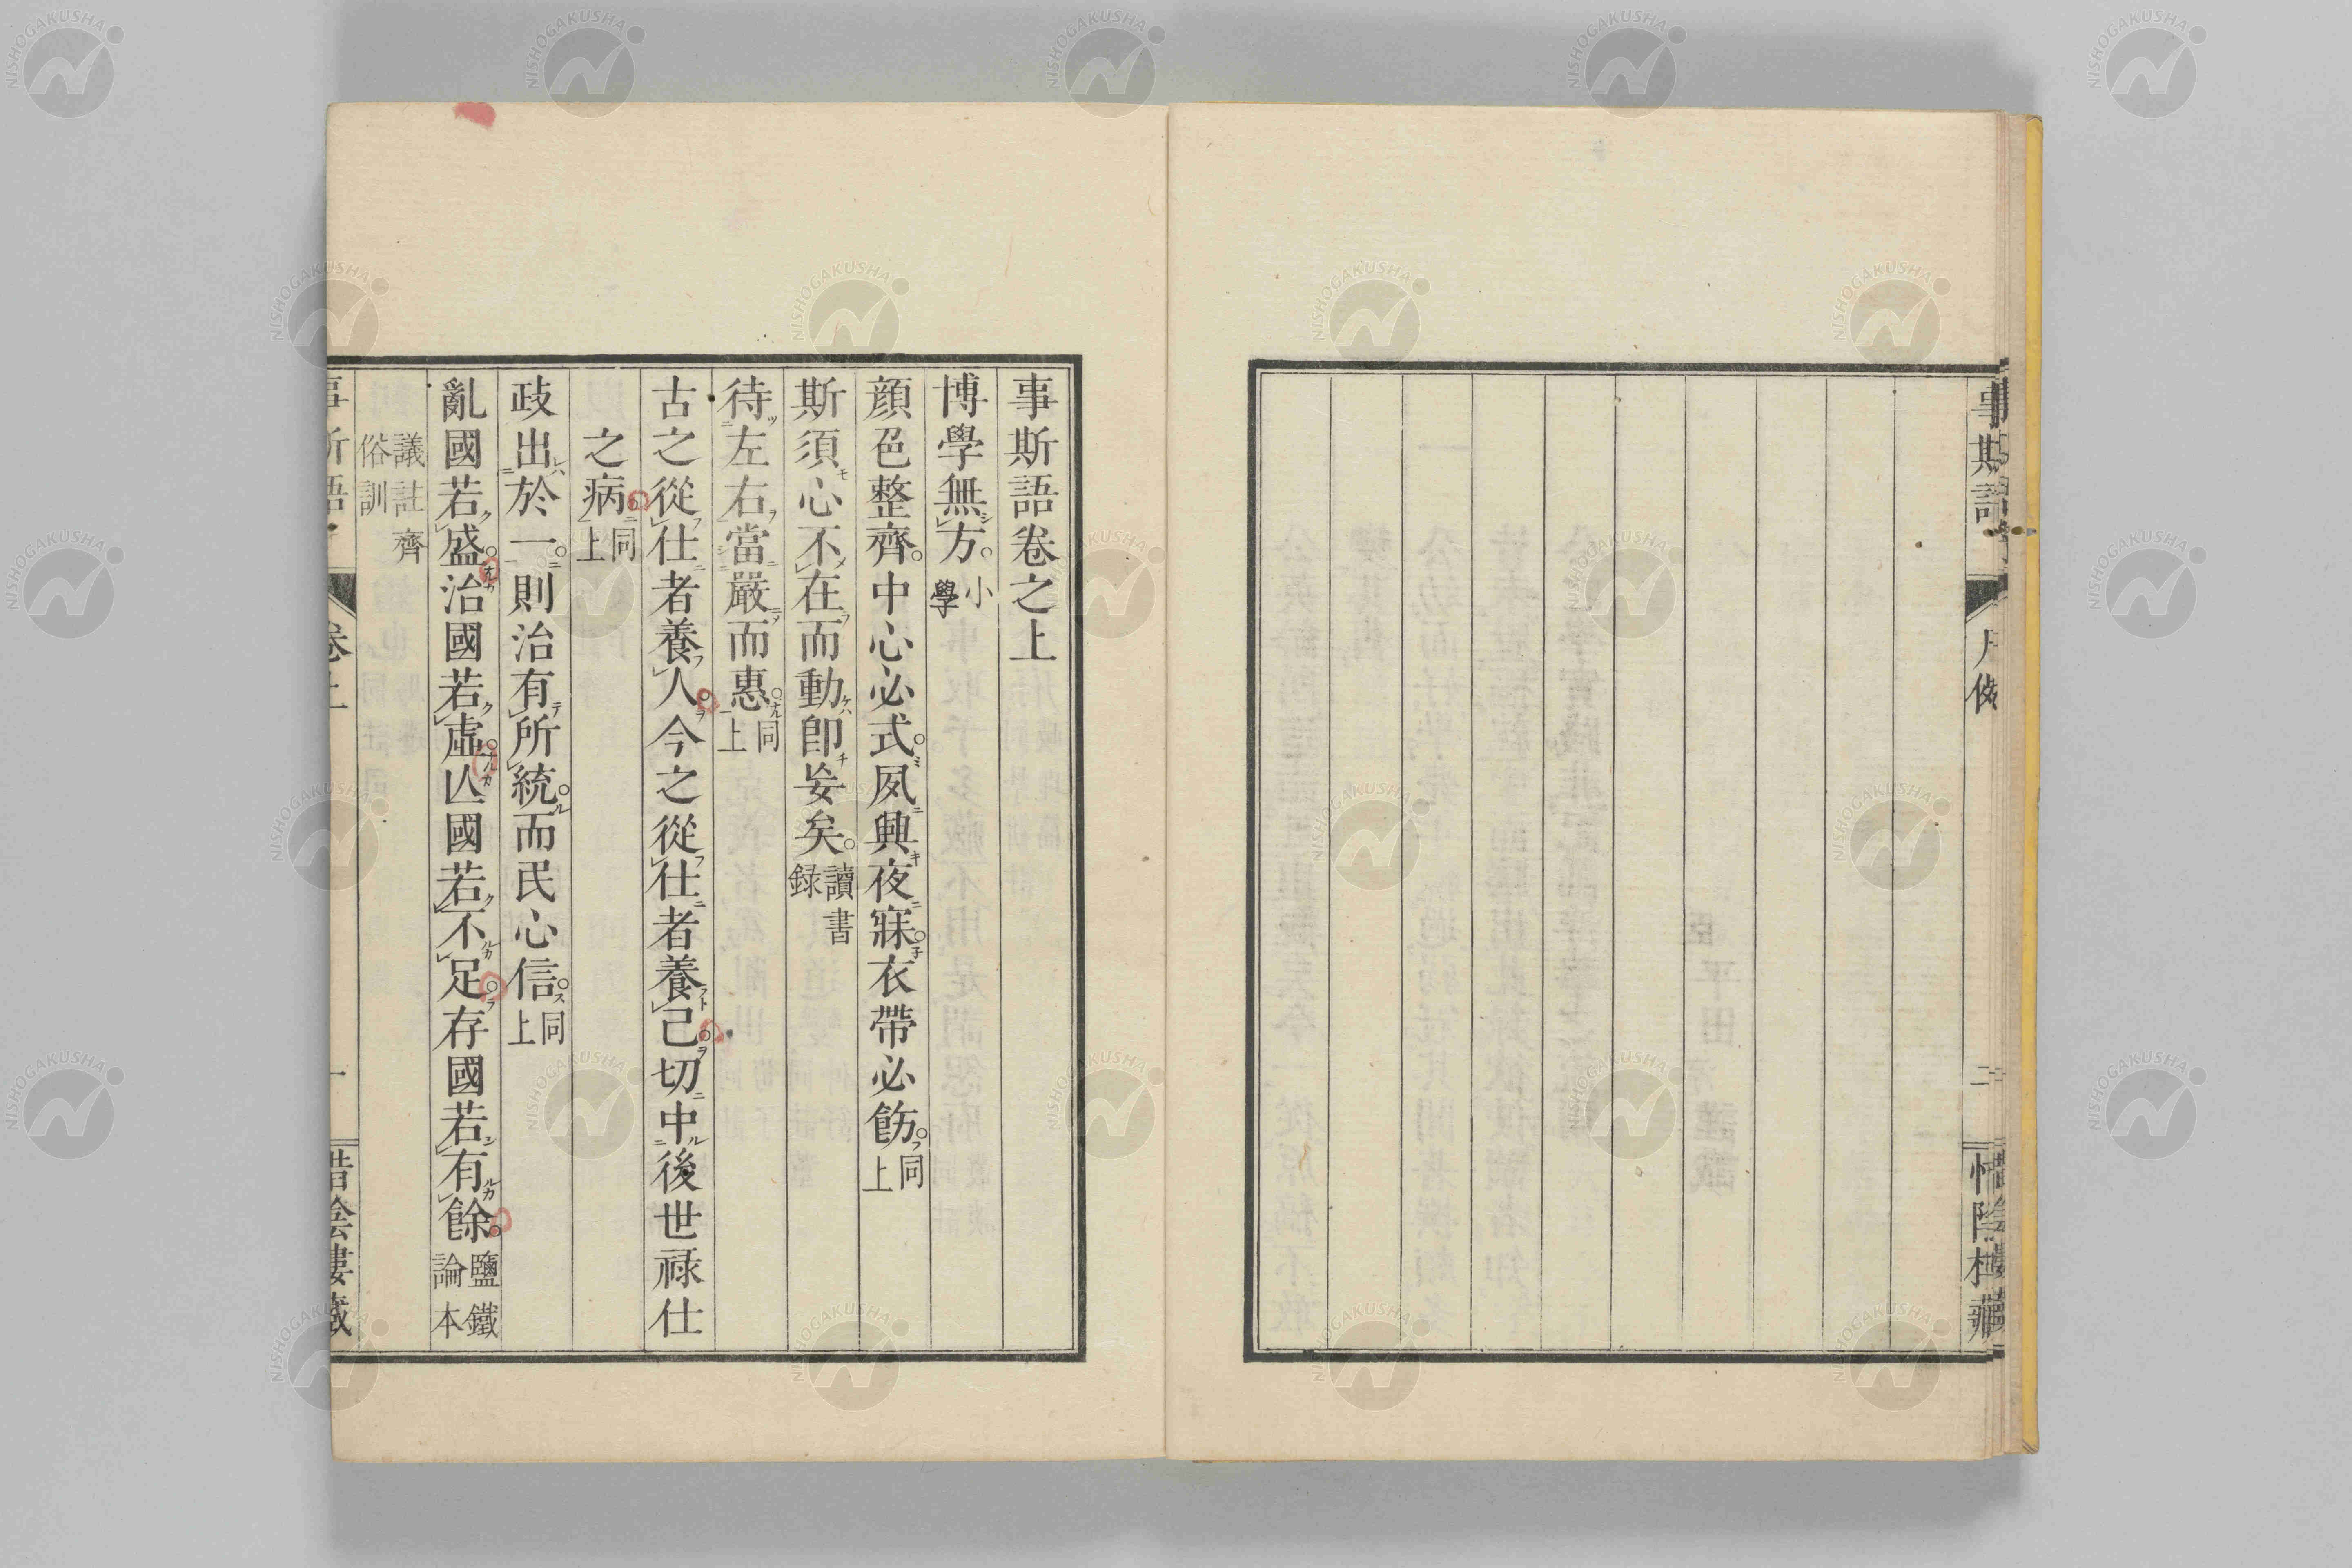 事斯語卷之上
博學無方。小學
顔色整齊。中心必式。夙興夜寐。衣帶必飭。同上
斯須心不在而動卽妄矣。讀書録
待左右當嚴而惠。同上
古之從仕者養人。今之從仕者養己。切中後世祿仕
之病。同上
政出於一。則治有所統。而民心信。同上
亂國若盛。治國若虛。亾國若不足。存國若有餘。鹽鐵論本
議註齊俗訓
事斯語 卷上 一 惜陰樓藏
事斯語 凡例 二 惜陰樓藏
NISHOGAKUSHA